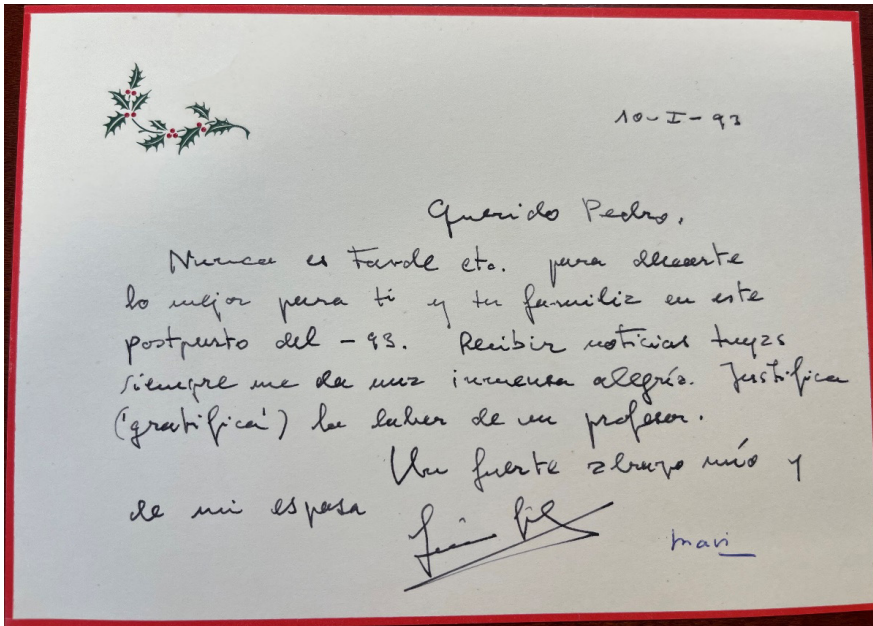 10-I-93
Querido Pedro,
Nunca es Tarde etc. para desearte
lo mejor para ti y tu familia en este
del -93. Recibir noticias tuyas
siempre me da una inmensa alegría. Justifica
('gratifica') la labor de un profesor.
Un fuerte abrazo mío y
de mi esposa
Gil
Mavi